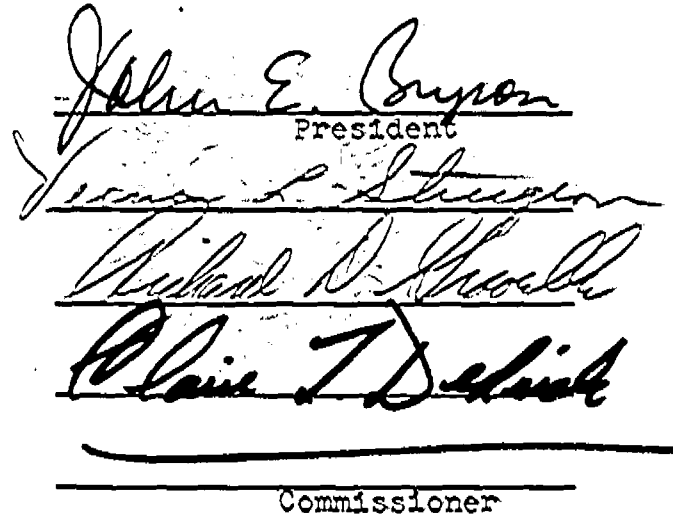 John E. Bryson
President
Vernon L. Sturgeon
Richard D. Gravelle
Claire T. Dedrick
Commissioner